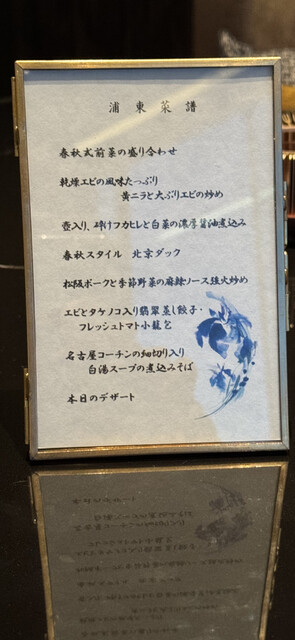 浦東菜譜
春秋式前菜の盛り合わせ
乾燻エビの風味たっぷり
黄ニラと大ぶりエビの炒め
壺入り、砕けフカヒレと白菜の濃厚醤油煮込み
春秋スタイル 北京ダック
松阪ポークと季節野菜の麻辣ソース強火炒め
エビとタケノコ入り翡翠蒸し餃子・
フレッシュトマト小籠包
名古屋コーチンの細切り入り
白湯スープの煮込みそば
本日のデザート